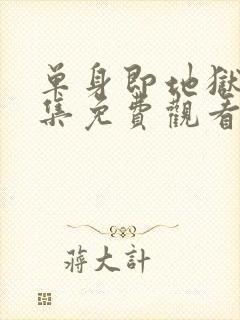 单身即地獄
集免費觀看
蔣大計